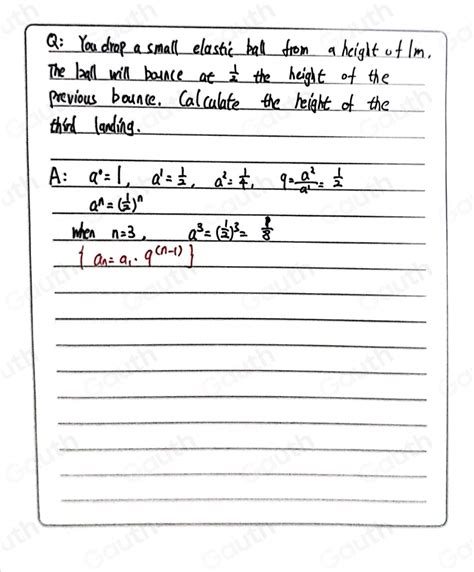 Q: You drop a small elastic ball from a height of 1m.
The ball will bounce at 1/2 the height of the
previous bounce. Calculate the height of the
third landing.
A: a⁰=1, a¹=1/2, a²=1/4, q=a²/a¹=1/2
aⁿ=(1/2)ⁿ
when n=3, a³=(1/2)³=1/8
{ aₙ=a₁·q⁽ⁿ⁻¹⁾ }
Gauth